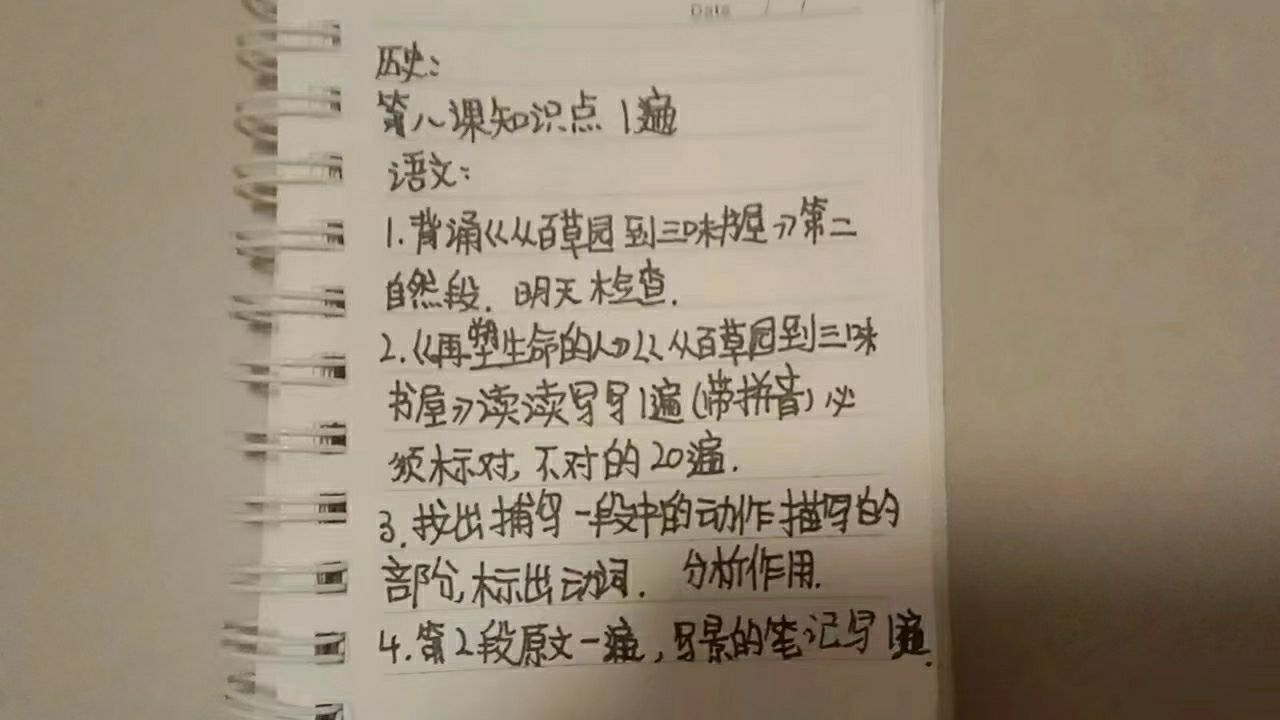 Data / /
历史:
第八课知识点 1遍
语文:
1.背诵《从百草园到三味书屋》第二
自然段.明天检查.
2.《再塑生命的人》《从百草园到三味
书屋》读读写写1遍(带拼音)必
须标对,不对的20遍.
3.找出捕鸟一段中的动作描写的
部分,标出动词. 分析作用.
4.第2段原文一遍,写景的笔记写1遍.